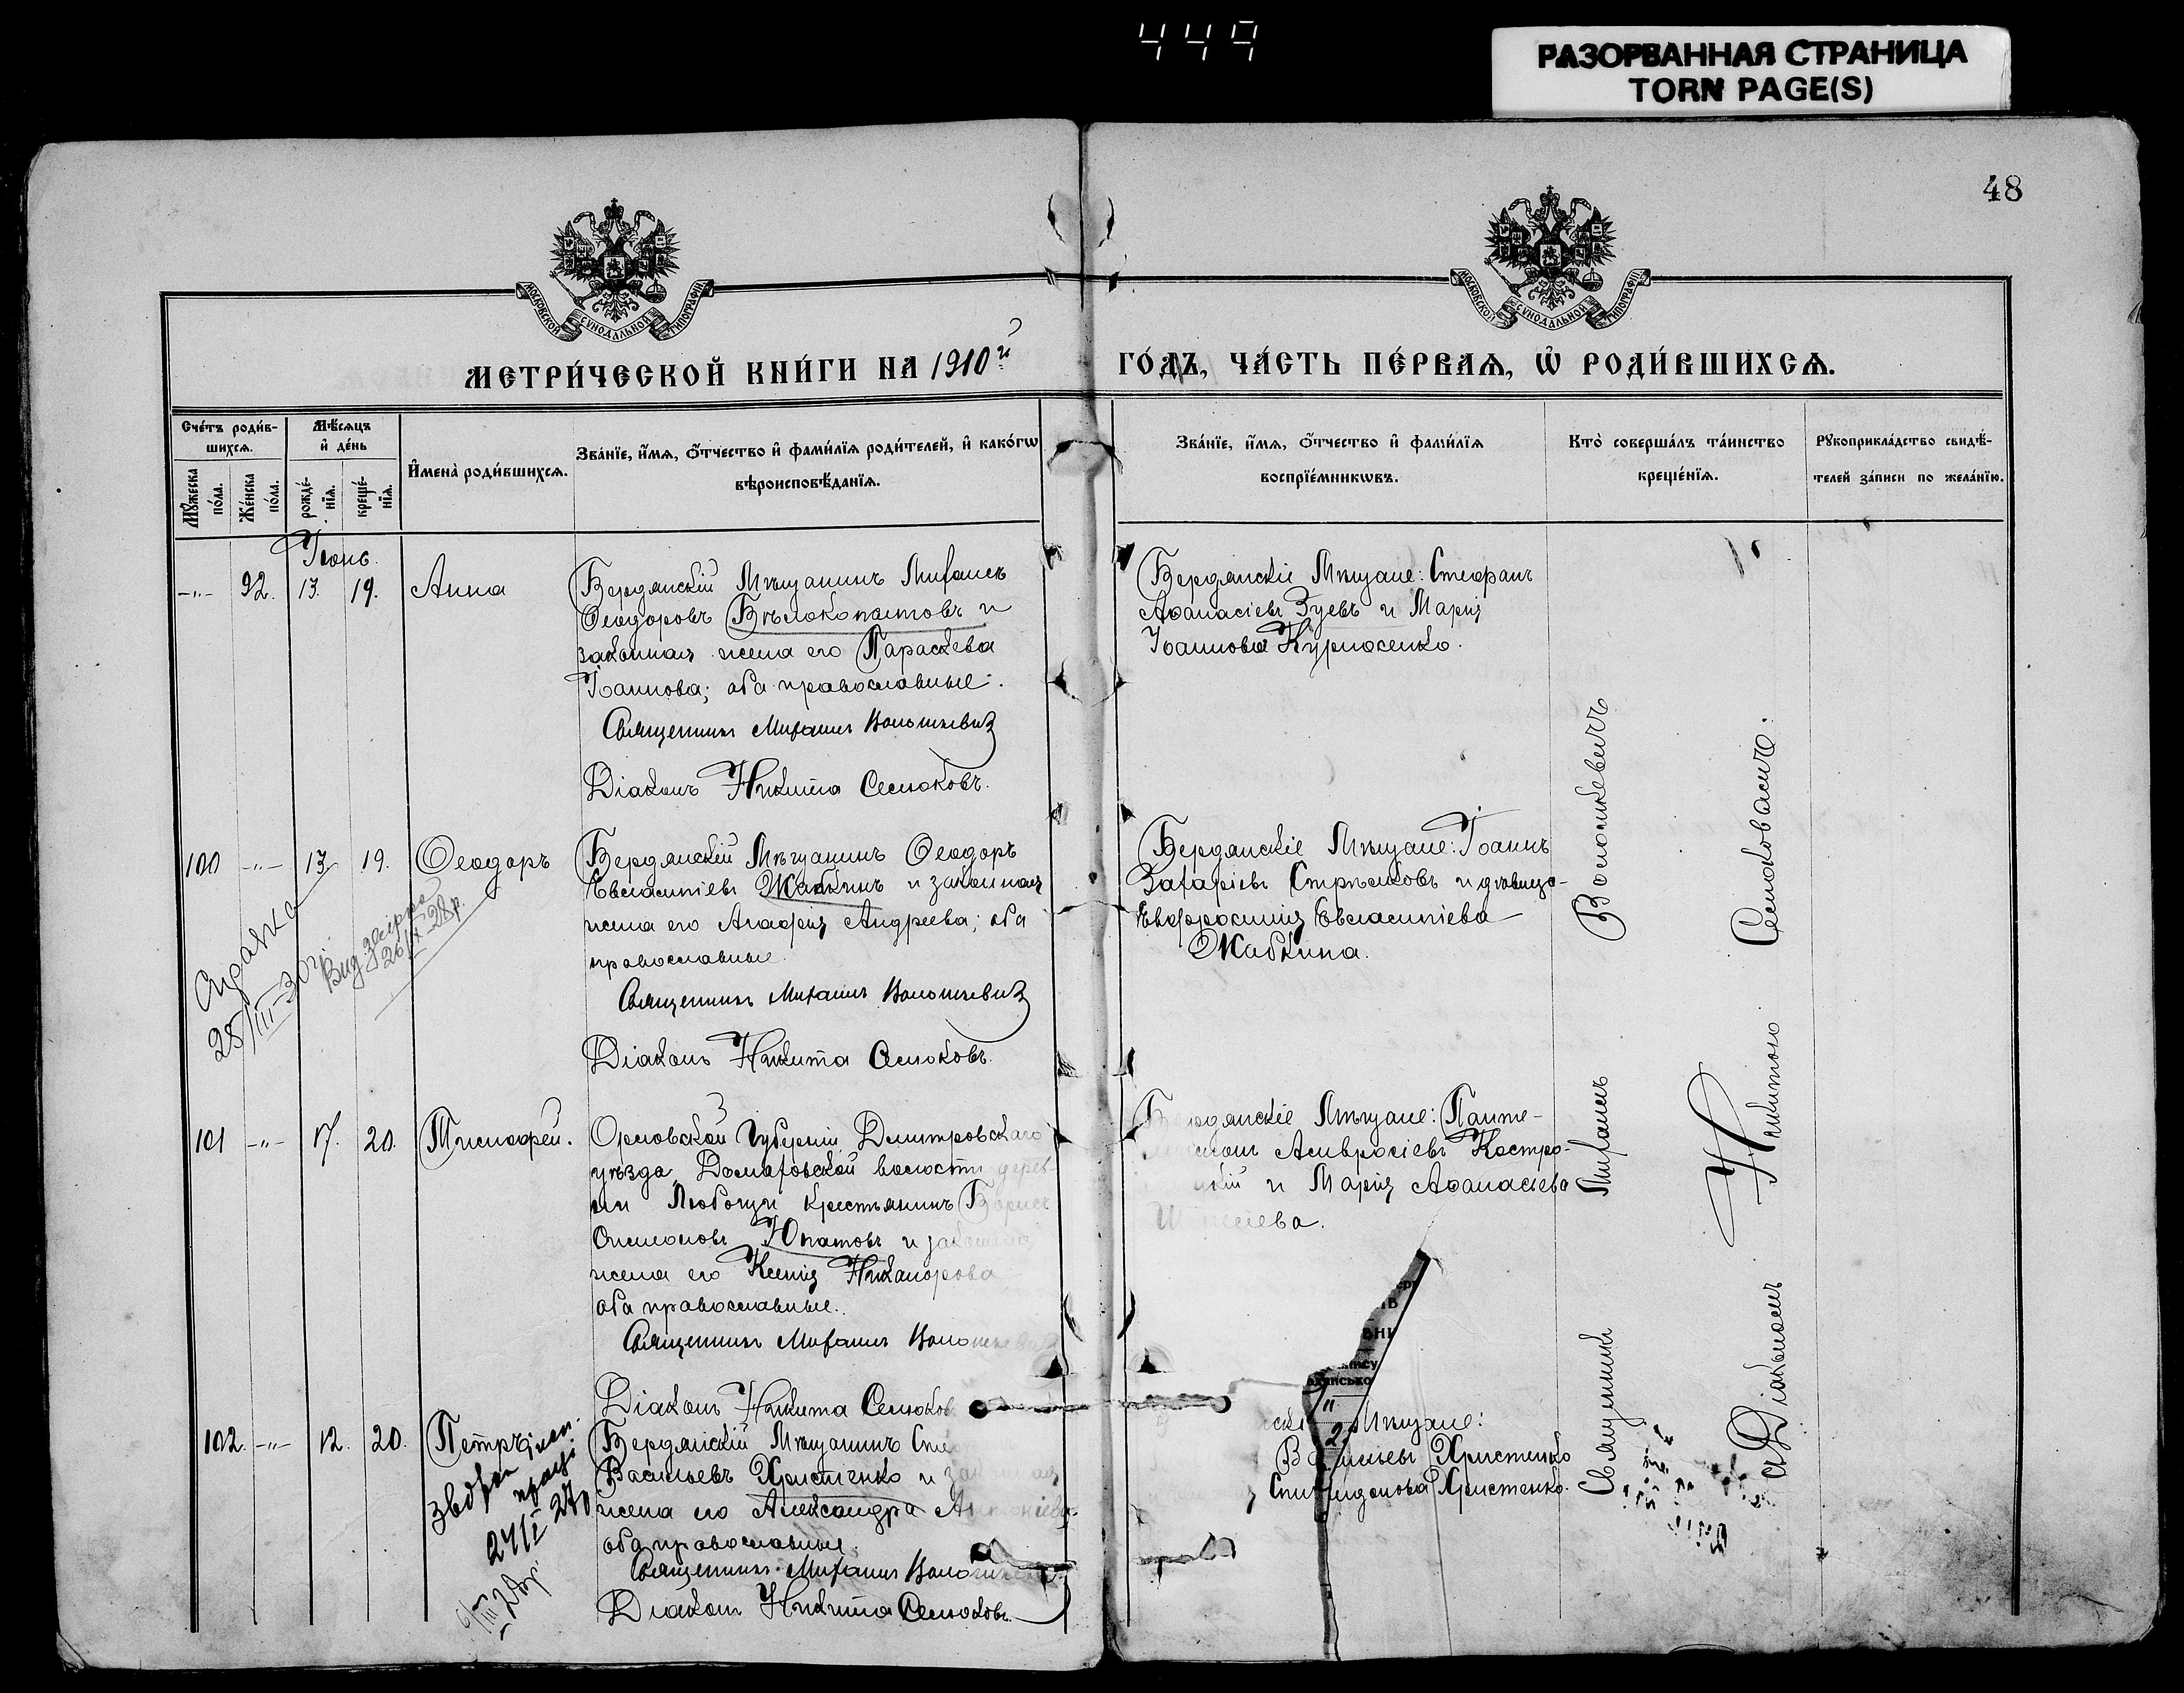 449
РАЗОРВАННАЯ СТРАНИЦА
TORN PAGE(S)
48
МОСКОВСКОЙ СѴНОДАЛЬНОЙ ТИПОГРАФІИ
МОСКОВСКОЙ СѴНОДАЛЬНОЙ ТИПОГРАФІИ
МЕТРИ́ЧЕСКОЙ КНИ́ГИ НА 1910й
ГО́ДЪ, ЧА́СТЬ ПЕ́РВАѦ, Ѡ҆ РОДИ́ВШИХСѦ.
Сче́тъ роди́в-
шихсѧ.
Мꙋ́жеска
по́ла.
Же́нска
по́ла.
Мѣ́сѧцъ
и҆ де́нь
рожде́-
нїѧ.
креще́-
нїѧ.
И҆мена̀ роди́вшихсѧ.
Зва́нїе, и҆́мѧ, ѻ҆́тчество и҆ фами́лїѧ роди́телей, и҆ како́гѡ
вѣроисповѣ́данїѧ.
Зва́нїе, и҆́мѧ, ѻ҆́тчество и҆ фами́лїѧ
воспрїе́мникѡвъ.
Кто̀ соверша́лъ та́инство
креще́нїѧ.
Рꙋкоприкла́дство свидѣ́-
телей за́писи по жела́нїю.
Іюнь.
-„- 92. 13. 19. Анна
Бердянскій Мѣщанинъ Михаилъ
Ѳеодоровъ Бѣлокопытовъ и
законная жена его Параскева
Іоаннова; оба православные.
Священникъ Михаилъ Волошкевичъ
Діаконъ Никита Селюковъ.
Бердянскіе Мѣщане: Стефанъ
Аѳанасіевъ Зуевъ и Марія
Іоаннова Курносенко.
100 -„- 13 19. Ѳеодоръ
Бердянскій Мѣщанинъ Ѳеодоръ
Евстаѳіевъ Жабкинъ и законная
жена его Агафія Андреева; оба
православные.
Священникъ Михаилъ Волошкевичъ
Діаконъ Никита Селюковъ.
Бердянскіе Мѣщане: Іоаннъ
Захаріевъ Стрѣлковъ и дѣвица
Евфросинія
Жабкина.
Справка
28/III-30р.
Вид.
26/IX-28р.
101 -„- 17. 20. Тимофей.
Орловской Губерніи Дмитровскаго
уѣзда, Домаховской волости дерев-
ни Любощи крестьянинъ Борисъ
Юпатовъ и законная
жена его Ксенія Никанорова
оба православные.
Священникъ Михаилъ Волошкевичъ
Діаконъ Никита Селюков
Бердянскіе Мѣщане: Панте-
Амвросіевъ Костро-
и Марія Аѳанасьева
102. -„- 12. 20. Петръ
Бердянскій Мѣщанинъ Спи
Васильевъ Христенко и законная
жена его Александра Антоніева
оба православные.
Священникъ Михаилъ Волошкевичъ
Діаконъ Никита Селюковъ.
ск Мѣщане:
Васильевъ Христенко
Спиридонова Христенко.
24/I
Священникъ Михаилъ Волошкевичъ
съ Діакономъ Никитою Селюковымъ.